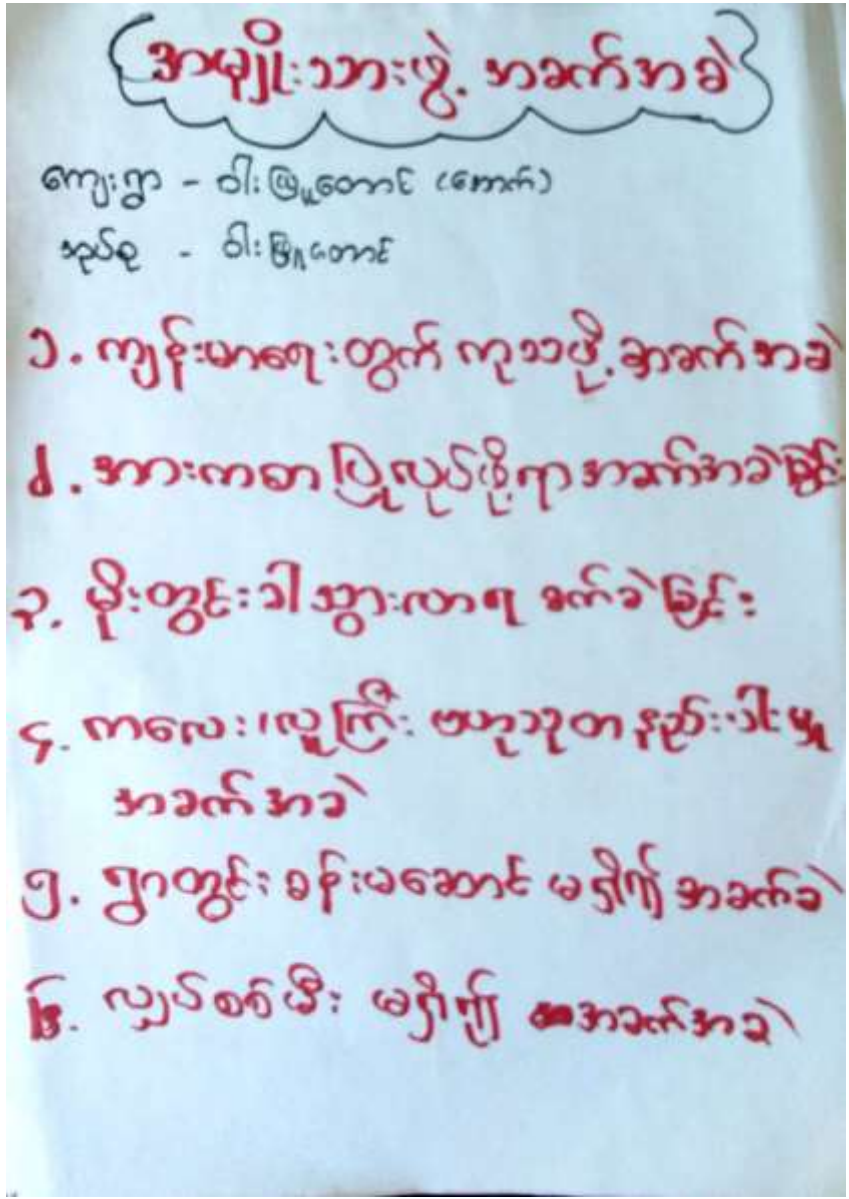 အမျိုးသားဖွဲ့ အခက်အခဲ
ကျေးရွာ - ဝါးဖြူတောင် (အောက်)
အုပ်စု - ဝါးဖြူတောင်
၁. ကျန်းမာရေးတွက် ကုသဖို့ အခက်အခဲ
၂. အားကစား ပြုလုပ်ဖို့ရာ အခက်အခဲခြင်း
၃. မိုးတွင်းခါ သွားလာရ ခက်ခဲခြင်း
၄. ကလေး၊လူကြီး ဗဟုသုတ နည်းပါးမှု
အခက်အခဲ
၅. ရွာတွင်း ခန်းမဆောင် မရှိ၍ အခက်ခဲ
၆. လျှပ်စစ်မီး မရှိ၍ အခက်အခဲ